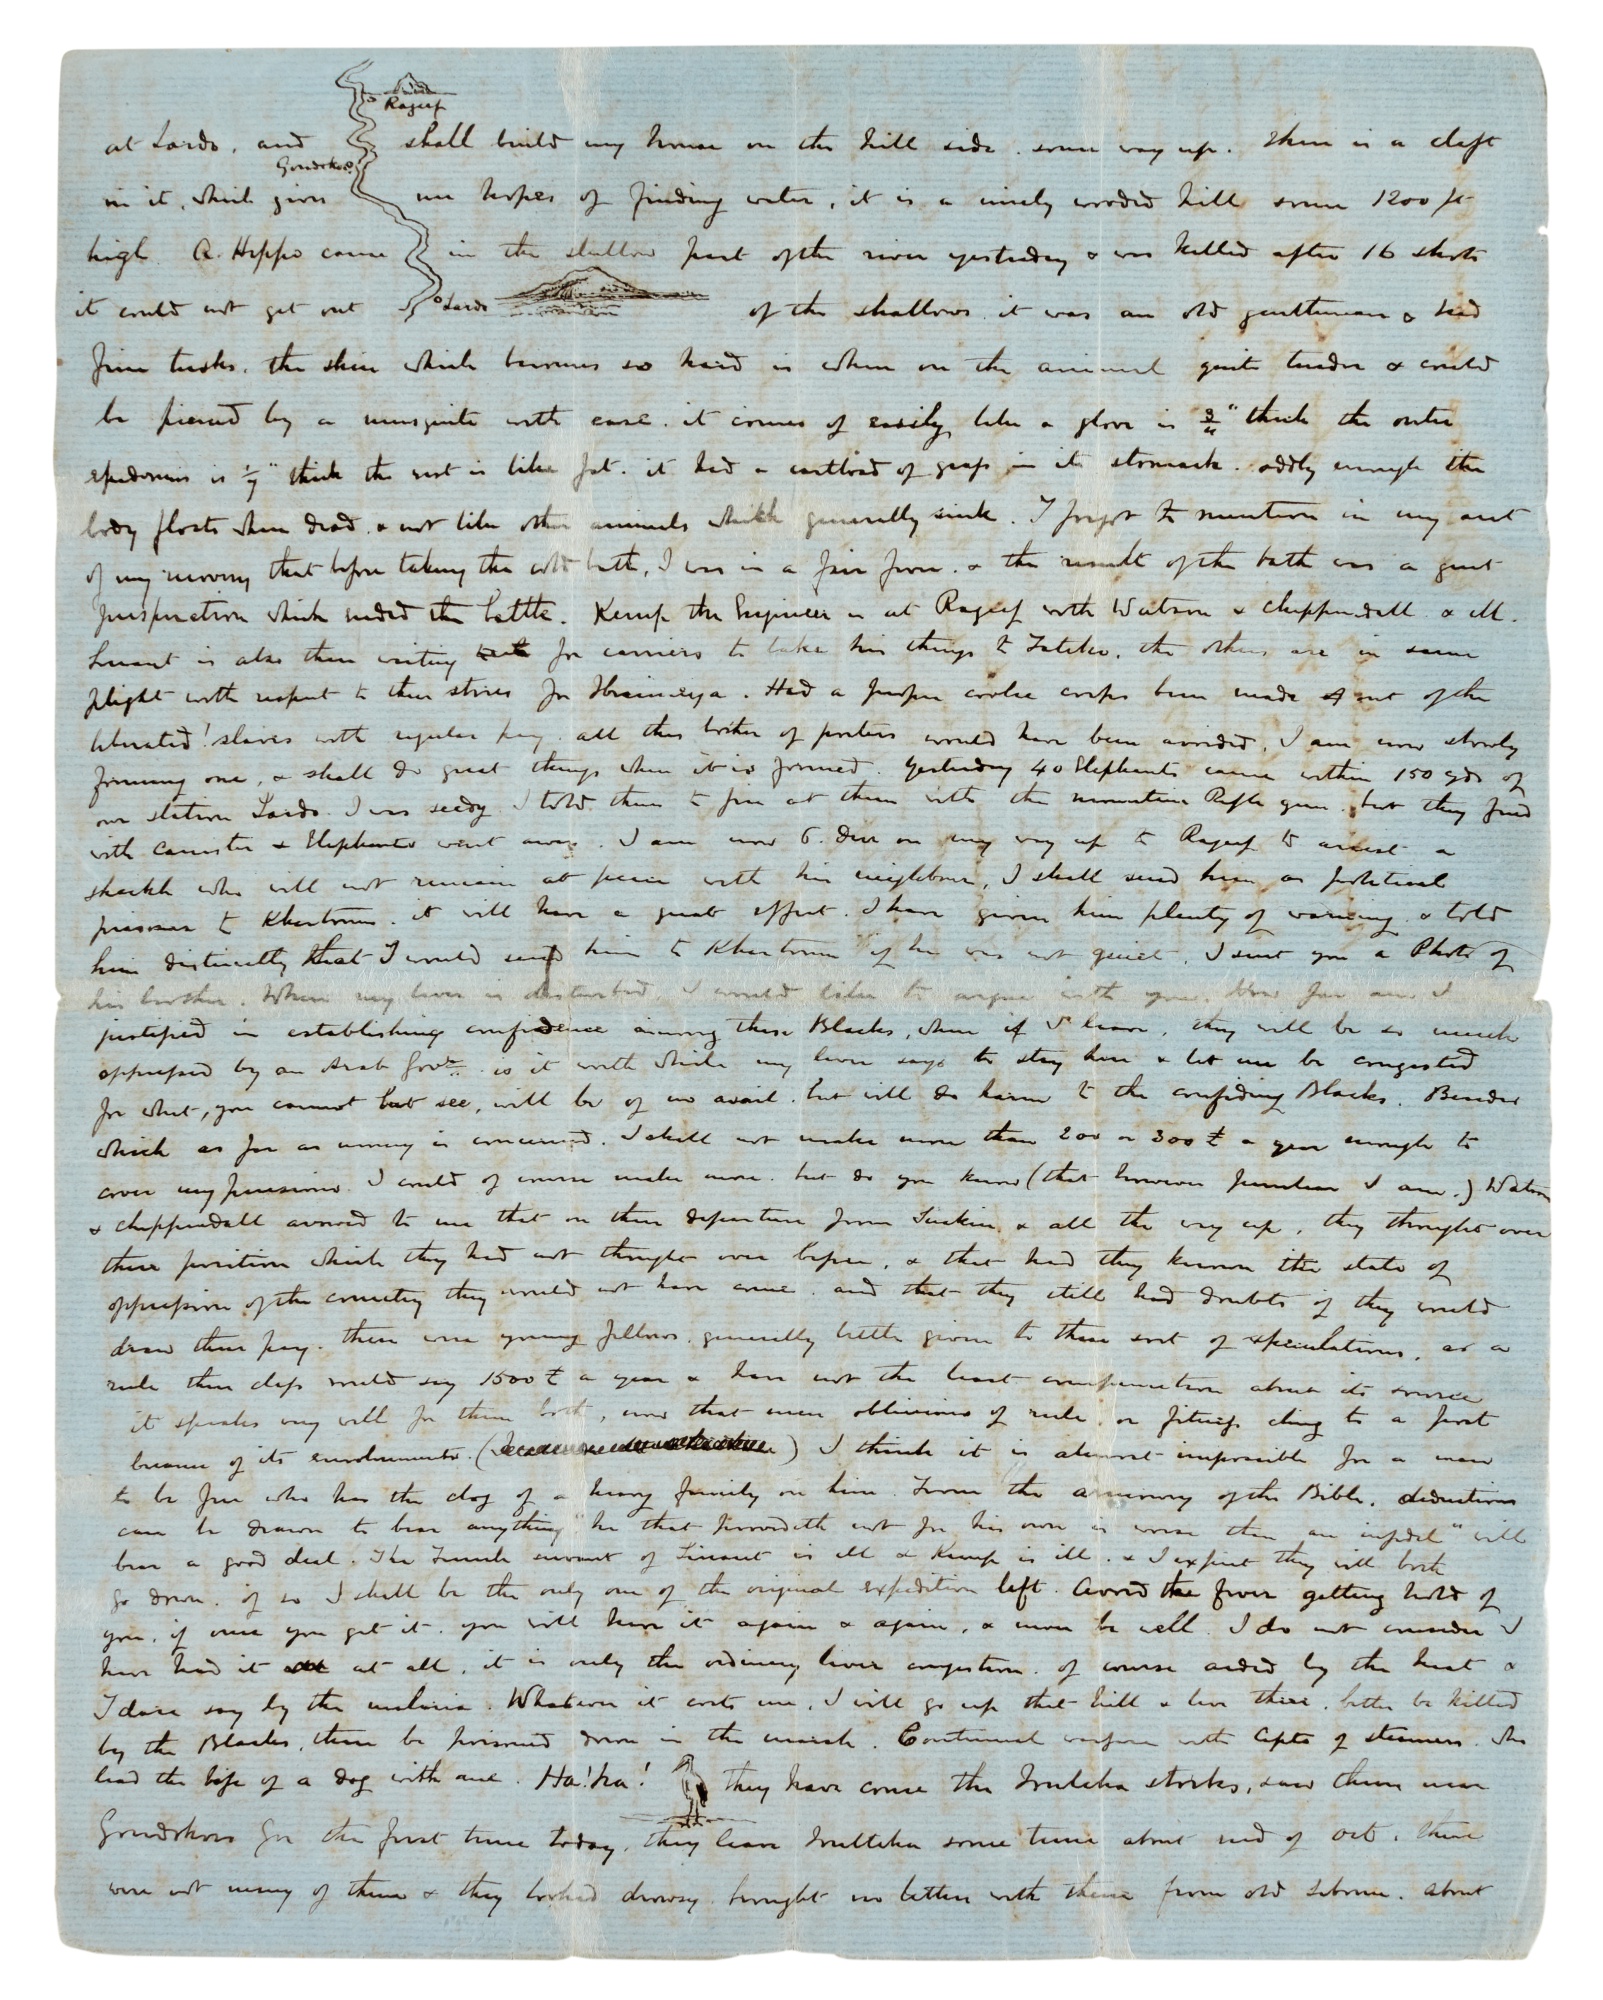 Rageef
at Lardo, and shall build my house on the hill side. some way up. There is a cleft
Gondokoro
in it, which gives me hopes of finding water, it is a nicely wooded hill some 1200 ft
high. A Hippo came in the shallow part of the river yesterday & was killed after 16 shots
it could not get out of the shallows. it was an old gentleman & had
Lardo
fine tusks. the skin which becomes so hard is when on the animal quite tender & could
be pierced by a musquito with ease. it comes of easily like a glove is thick the outer
epidermis is thick the rest is like fat. it had a cartload of grass in its stomach. oddly enough the
body floats when dead. & not like other animals which generally sink. I forgot to mention in my acct
of my recovery that before taking the cold bath, I was in a fair fever. & the result of the bath was a great
perspiration which ended the battle. Kemp the Engineer is at Rageef with Watson & Chippendall & ill.
Linant is also there waiting for carriers to take his things to Fatiko. the others are in same
plight with respect to their stores for Ibrahimeya. Had a proper coolie corps been made out of the
liberated! slaves with regular pay. all this bother of porters would have been avoided. I am now slowly
forming one, & shall do great things when it is formed. Yesterday 40 Elephants came within 150 yds of
our station Lardo. I was seedy. I told them to fire at them with the mountain Rifle gun. but they fired
with canister & Elephants went away. I am now 6. Decr on my way up to Rageef to arrest a
sheikh who will not remain at peace with his neighbour, I shall send him as political
prisoner to Khartoum. it will have a great effect. I have given him plenty of warning & told
him distinctly that I would send him to Khartoum if he was not quiet. I sent you a Photo of
his brother. When my liver is disturbed, I would like to argue with you. How far am I
justified in establishing confidence among these Blacks, when if I leave, they will be so much
oppressed by an Arab Govt. is it worth while my liver says to stay here & let me be congested
for what, you cannot but see, will be of no avail. but will do harm to the confiding Blacks. Besides
which as far as money is concerned. I shall not make more than 200 or 300 £ a year enough to
cover my pensions. I could of course make more. but do you know (that however peculiar I am.) Watson
& Chippendall avowed to me that on their departure from Suakin & all the way up, they thought over
their position which they had not thought over before, & that had they known the state of
oppression of the country they would not have come. and that they still had doubts if they would
draw their pay. these were young fellows. generally little given to these sort of speculations. as a
rule their class would say 1500 £ a year & have not the least compunction about its source
it speaks very well for them both, now that men oblivious of rule. or fitness cling to a post
because of its emoluments. I think it is almost impossible for a man
to be free who has the clog of a heavy family on him. From the armoury of the Bible. deductions
can be drawn to bear anything "he that provideth not for his own is worse than an infidel" will
bear a good deal. The Female servant of Linant is ill & Kemp is ill. & I expect they will both
go down. if so I shall be the only one of the original expedition left. Avoid the fever getting hold of
you. if once you get it. you will have it again & again, & never be well. I do not consider I
have had it at all. it is only the ordinary liver congestion. of course aided by the heat &
I dare say by the malaria. Whatever it costs me, I will go up that hill & live there. better be killed
by the Blacks, then be poisoned down in the marsh. Continual warfare with Capts of steamers. who
lead the life of a dog with me. Ha! ha! they have come the storks, saw them near
Gondokoro for the first time today. they leave some time about end of Oct. there
were not many of them & they looked drowsy. brought no letters with them from old. about